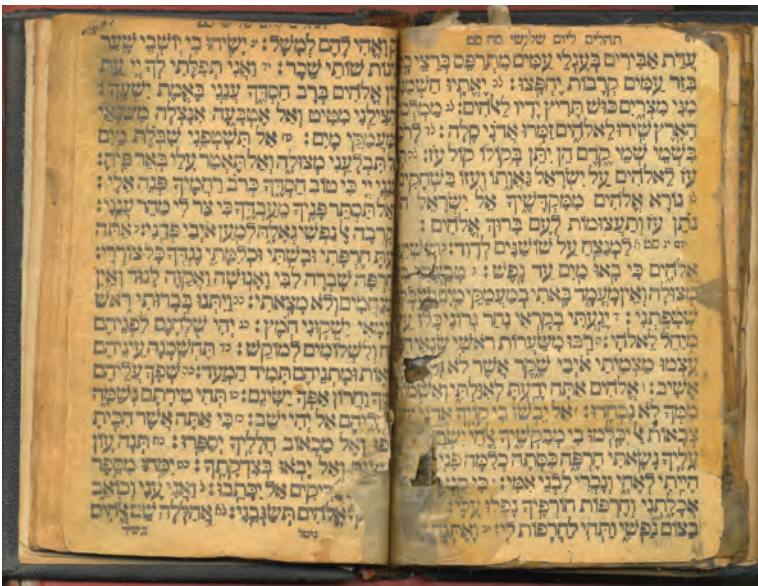 תהלים ליום שלישי סח סט
עֲדַת אַבִּירִים בְּעֶגְלֵי עַמִּים מִתְרַפֵּס בְּרַצֵּי
בִּזַּר עַמִּים קְרָבוֹת יֶחְפָּצוּ: לב יֶאֱתָיוּ
מִנִּי מִצְרָיִם כּוּשׁ תָּרִיץ יָדָיו לֵאלֹהִים: לג
הָאָרֶץ שִׁירוּ לֵאלֹהִים זַמְּרוּ אֲדֹנָי סֶלָה: לד
בִּשְׁמֵי שְׁמֵי קֶדֶם הֵן יִתֵּן בְּקוֹלוֹ קוֹל עֹז:
עֹז לֵאלֹהִים עַל יִשְׂרָאֵל גַּאֲוָתוֹ וְעֻזּוֹ בַּשְּׁחָקִים
נוֹרָא אֱלֹהִים מִמִּקְדָּשֶׁיךָ אֵל יִשְׂרָאֵל
נֹתֵן עֹז וְתַעֲצֻמוֹת לָעָם בָּרוּךְ אֱלֹהִים:
סט לַמְנַצֵּחַ עַל שׁוֹשַׁנִּים לְדָוִד:
אֱלֹהִים כִּי בָאוּ מַיִם עַד נָפֶשׁ:
מְצוּלָה וְאֵין מָעֳמָד בָּאתִי בְמַעֲמַקֵּי מַיִם
שְׁטָפָתְנִי: יָגַעְתִּי בְקָרְאִי נִחַר גְּרוֹנִי כָּלוּ
מְיַחֵל לֵאלֹהָי: רַבּוּ מִשַּׂעֲרוֹת רֹאשִׁי
עָצְמוּ מַצְמִיתַי אֹיְבַי שֶׁקֶר אֲשֶׁר לֹא
אָשִׁיב: אֱלֹהִים אַתָּה יָדַעְתָּ לְאִוַּלְתִּי
מִמְּךָ לֹא נִכְחָדוּ: אַל יֵבֹשׁוּ בִי קֹוֶיךָ
צְבָאוֹת אַל יִכָּלְמוּ בִי מְבַקְשֶׁיךָ
עָלֶיךָ נָשָׂאתִי חֶרְפָּה כִּסְּתָה כְלִמָּה
הָיִיתִי לְאֶחָי וְנָכְרִי לִבְנֵי אִמִּי: כִּי
אֲכָלָתְנִי וְחֶרְפּוֹת חוֹרְפֶיךָ נָפְלוּ עָלָי:
בַצּוֹם נַפְשִׁי וַתְּהִי לַחֲרָפוֹת לִי: וָאֶתְּנָה
וָאֱהִי לָהֶם לְמָשָׁל: יָשִׂיחוּ בִי יוֹשְׁבֵי שָׁעַר
שׁוֹתֵי שֵׁכָר: וַאֲנִי תְפִלָּתִי לְךָ יְיָ עֵת
אֱלֹהִים בְּרָב חַסְדֶּךָ עֲנֵנִי בֶּאֱמֶת יִשְׁעֶךָ:
הַצִּילֵנִי מִטִּיט וְאַל אֶטְבָּעָה אִנָּצְלָה מִשֹּׂנְאַי
מָיִם: אַל תִּשְׁטְפֵנִי שִׁבֹּלֶת מַיִם
תִּבְלָעֵנִי מְצוּלָה וְאַל תֶּאְטַר עָלַי בְּאֵר פִּיהָ:
יְיָ כִּי טוֹב חַסְדֶּךָ כְּרֹב רַחֲמֶיךָ פְּנֵה אֵלָי:
תַּסְתֵּר פָּנֶיךָ מֵעַבְדֶּךָ כִּי צַר לִי מַהֵר עֲנֵנִי:
נַפְשִׁי גְאָלָהּ לְמַעַן אֹיְבַי פְּדֵנִי: אַתָּה
חֶרְפָּתִי וּבָשְׁתִּי וּכְלִמָּתִי נֶגְדְּךָ כָּל צוֹרְרָי:
שָׁבְרָה לִבִּי וָאָנוּשָׁה וָאֲקַוֶּה לָנוּד וָאַיִן
וְלֹא מָצָאתִי: וַיִּתְּנוּ בְּבָרוּתִי רֹאשׁ
יַשְׁקוּנִי חֹמֶץ: יְהִי שֻׁלְחָנָם לִפְנֵיהֶם
וְלִשְׁלוֹמִים לְמוֹקֵשׁ: תֶּחְשַׁכְנָה עֵינֵיהֶם
וּמָתְנֵיהֶם תָּמִיד הַמְעַד: שְׁפָךְ עֲלֵיהֶם
וַחֲרוֹן אַפְּךָ יַשִּׂיגֵם: תְּהִי טִירָתָם נְשַׁמָּה
אַל יְהִי יֹשֵׁב: כִּי אַתָּה אֲשֶׁר הִכִּיתָ
וְאֶל מַכְאוֹב חֲלָלֶיךָ יְסַפֵּרוּ: תְּנָה עָוֹן
וְאַל יָבֹאוּ בְּצִדְקָתֶךָ: יִמָּחוּ מִסֵּפֶר
אַל יִכָּתֵבוּ: וַאֲנִי עָנִי וְכוֹאֵב
אֱלֹהִים תְּשַׂגְּבֵנִי: אֲהַלְלָה שֵׁם אֱלֹהִים
בשיר